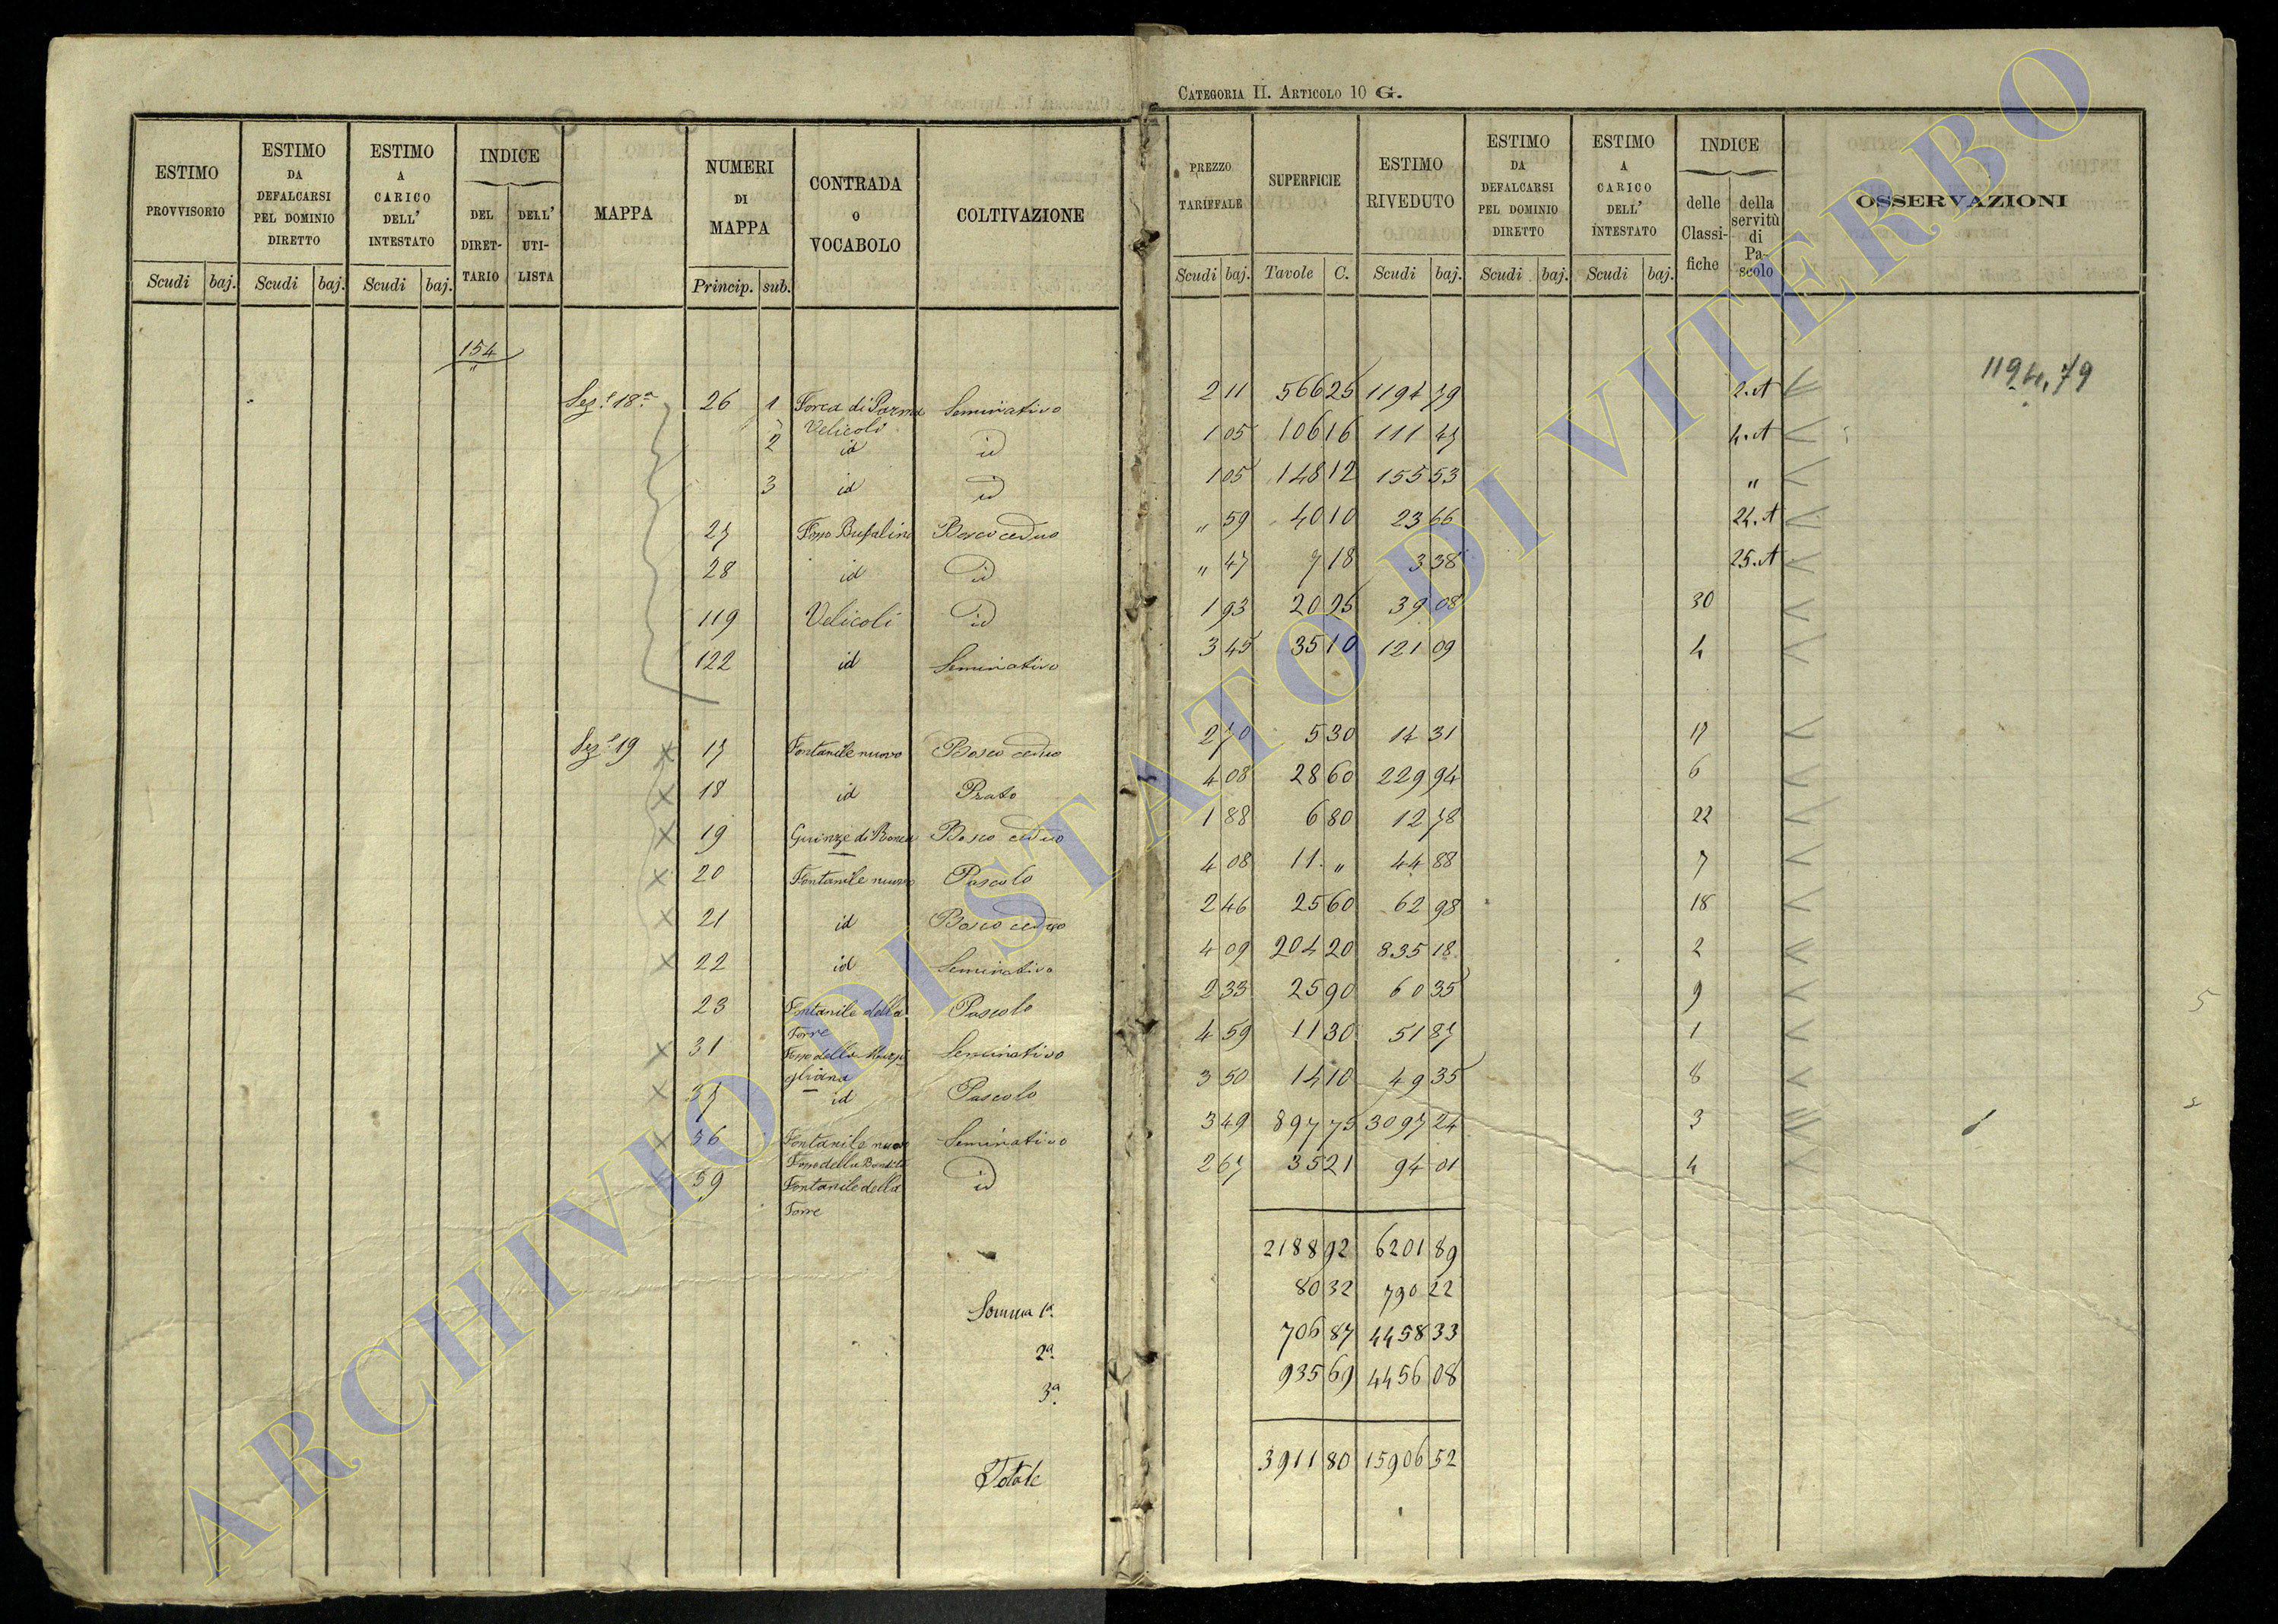 CATEGORIA II. ARTICOLO 10 G.
ESTIMO PROVVISORIO Scudi baj.
ESTIMO DA DEFALCARSI PEL DOMINIO DIRETTO Scudi baj.
ESTIMO A CARICO DELL' INTESTATO Scudi baj.
INDICE DEL DIRETTARIO DELL' UTILISTA
MAPPA
NUMERI DI MAPPA Princip. sub.
CONTRADA O VOCABOLO
COLTIVAZIONE
PREZZO TARIFFALE Scudi baj.
SUPERFICIE Tavole C.
ESTIMO RIVEDUTO Scudi baj.
ESTIMO DA DEFALCARSI PEL DOMINIO DIRETTO Scudi baj.
ESTIMO A CARICO DELL' INTESTATO Scudi baj.
INDICE delle Classifiche della servitù di Pascolo
OSSERVAZIONI
154
Sez.e 18a 26 1 Forca di Parma Velicoli Seminativo 2 11 566 25 1194 79 2.A 1194,79
2 id id 1 05 106 16 111 47 4.A
3 id id 1 05 148 12 155 53 "
27 Fosso Bufalino Bosco ceduo " 59 40 10 23 66 24.A
28 id id " 47 7 18 3 38 25.A
119 Velicoli id 1 93 20 25 39 08 30
122 id Seminativo 3 45 35 10 121 09 4
Sez.e 19 17 Fontanile nuovo Bosco ceduo 2 70 5 30 14 31 17
18 id Prato 4 08 28 60 229 94 6
19 Bosco ceduo 1 88 6 80 12 78 22
20 Fontanile nuovo Pascolo 4 08 11 " 44 88 7
21 id Bosco ceduo 2 46 25 60 62 98 18
22 id Seminativo 4 09 204 20 835 18 2
23 Fontanile della Torre Pascolo 2 33 25 90 60 35 9
31 Fosso della Seminativo 4 59 11 30 51 87 1
37 id Pascolo 3 50 14 10 49 35 8
56 Fontanile nuovo Seminativo 3 49 897 75 3097 24 3
59 Fosso della Fontanile della Torre id 2 67 35 21 94 01 4
2188 92 6201 89
Somma 1a 80 32 790 22
2a 706 87 4458 33
3a 935 69 4456 08
Totale 3911 80 15906 52
ARCHIVIO DI STATO DI VITERBO